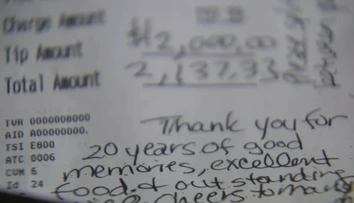 Charge Amount
Tip Amount $12,000.00
Total Amount 2,137.33
TVR 0000008000
AID A00000000.
TSI E800
ATC 0006
CVM 6
Id 24
Thank you for
20 years of good
memories, excellent
food & outstanding
Cheers to many